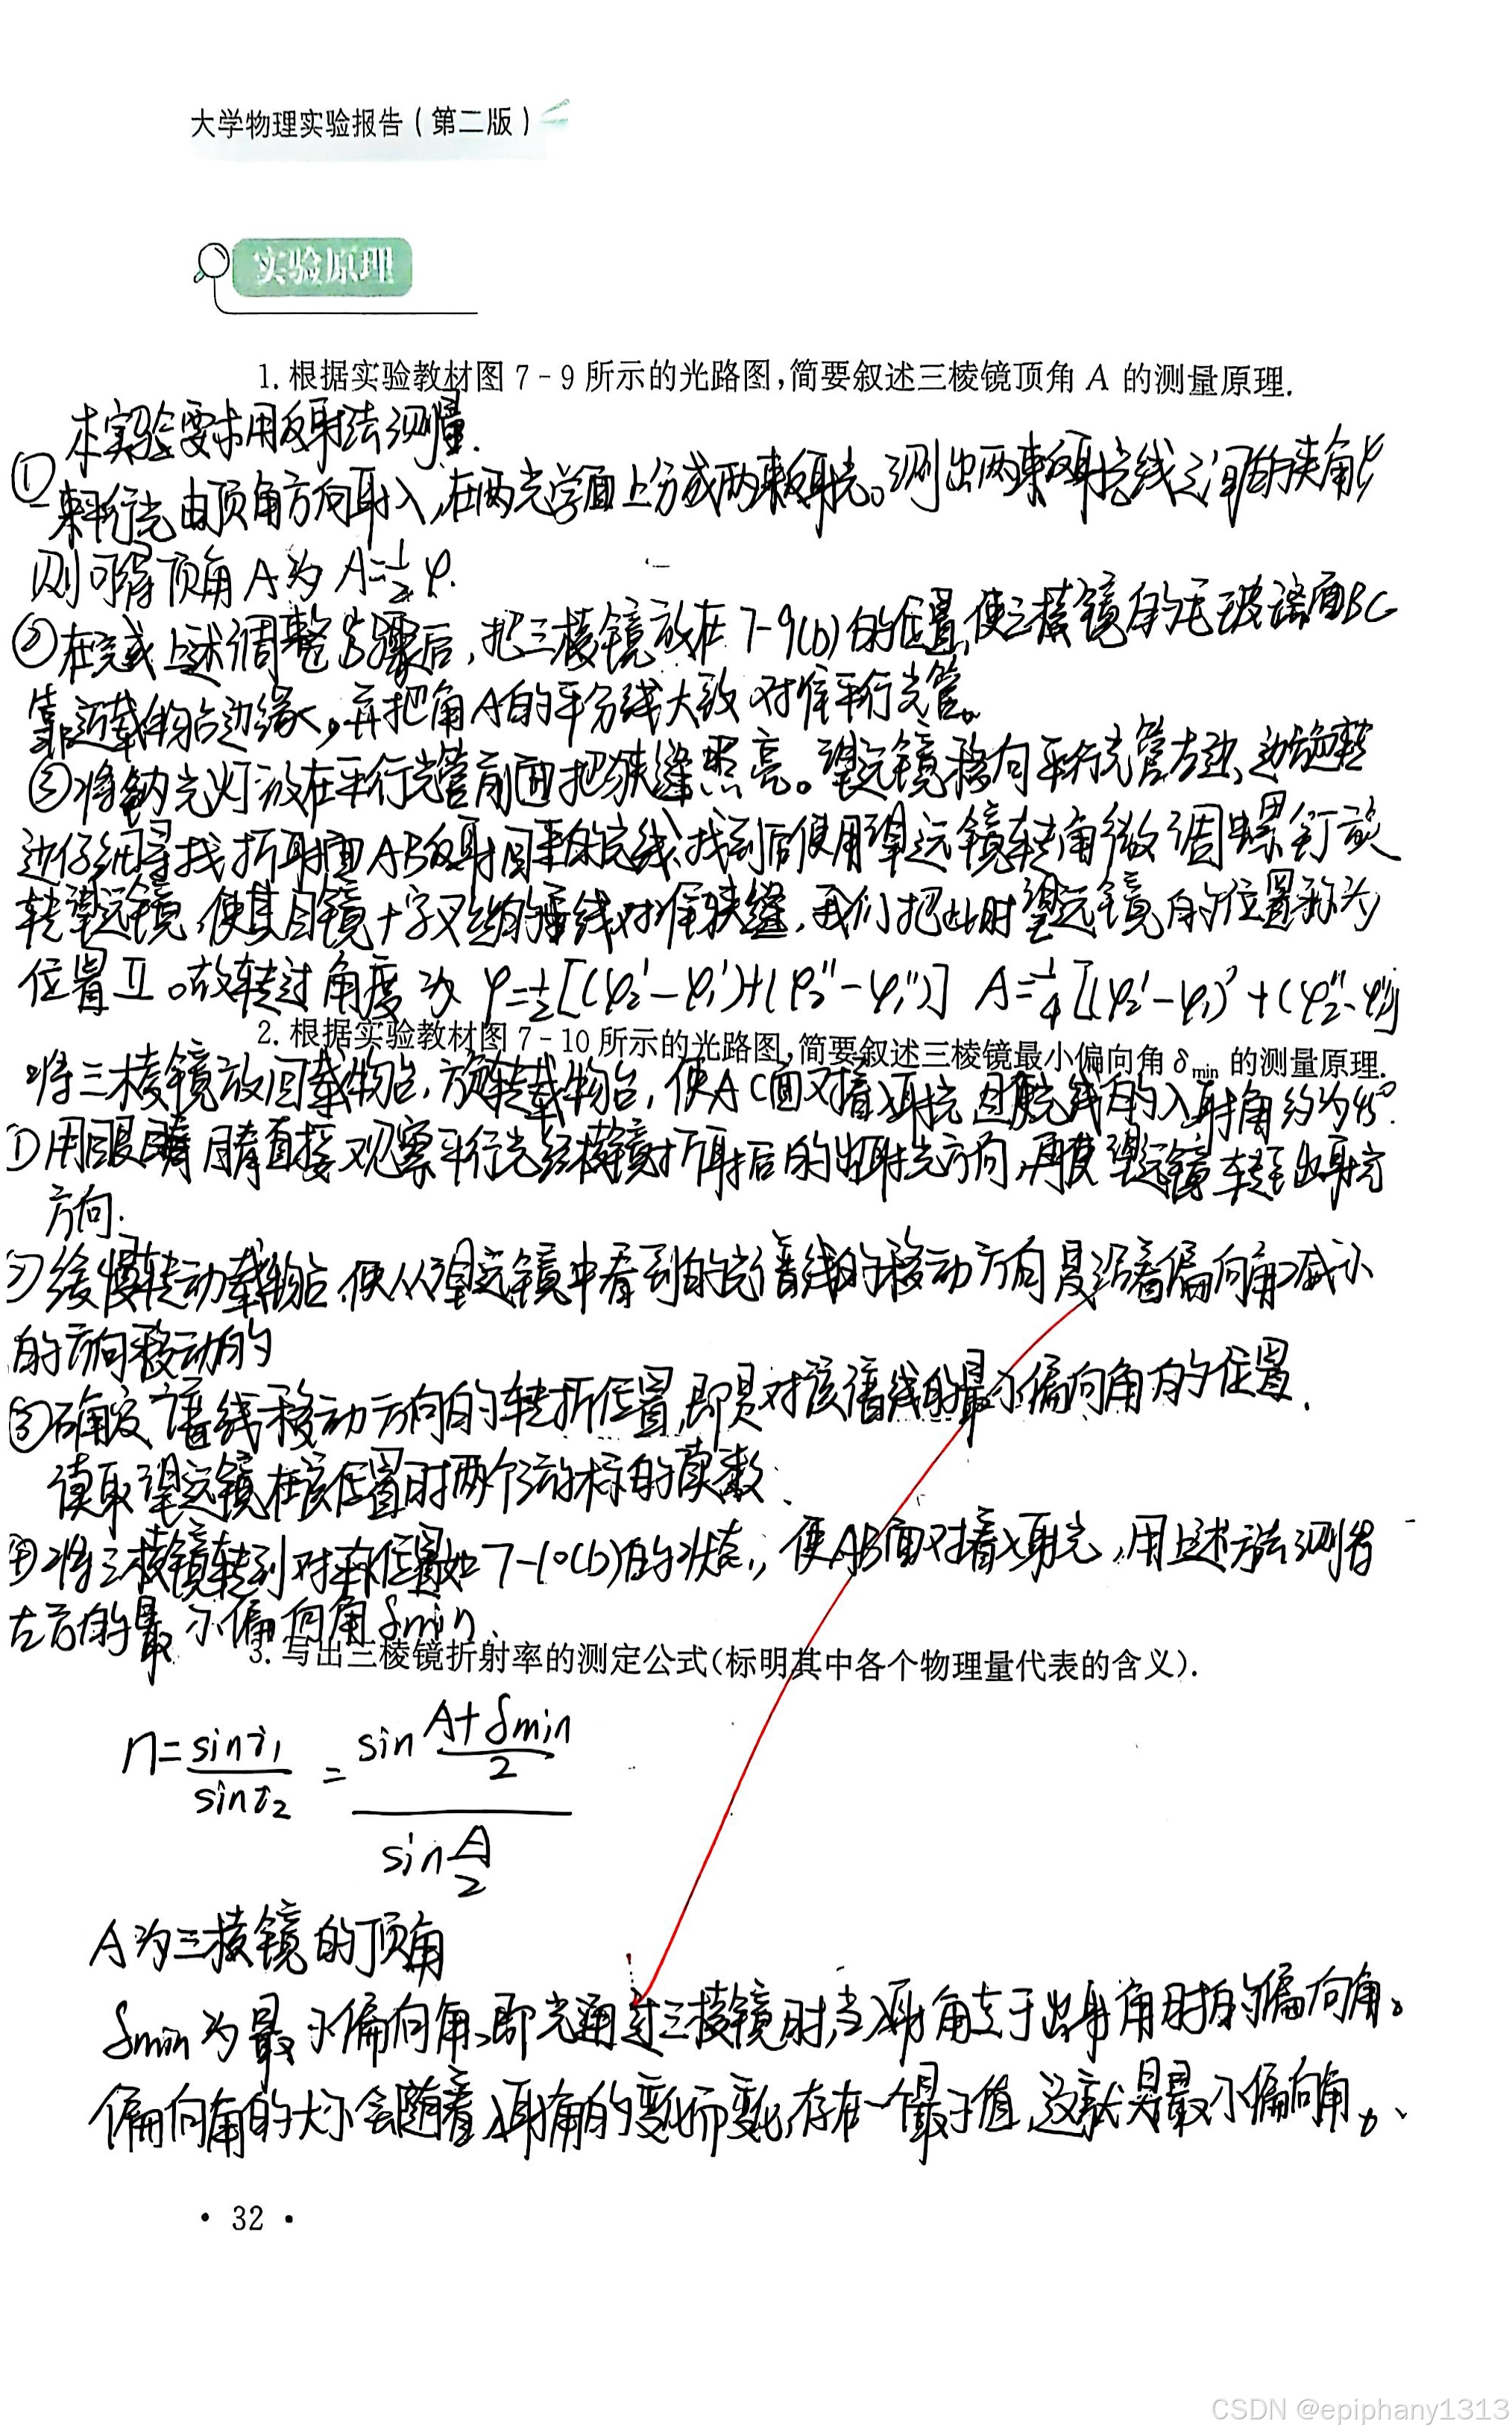 大学物理实验报告(第二版)
实验原理
1.根据实验教材图 7-9 所示的光路图,简要叙述三棱镜顶角 A 的测量原理.
本实验要求用反射法测量.
①一束平行光由顶角方向射入,在两光学面上分成两束反射光。测出两束反射光线之间的夹角φ
则可得顶角A为 A=1/2 φ.
②在完成上述调整步骤后,把三棱镜放在7-9(b)的位置,使三棱镜的毛玻璃面BC
靠近载物台边缘,并把角A的平分线大致对准平行光管。
③将钠光灯放在平行光管前面把狭缝照亮。望远镜移向平行光管左边,边旋转
边仔细寻找折射面AB反射回来的光线,找到后使用望远镜转角微调螺钉
转望远镜,使其目镜十字叉丝的垂线对准狭缝,我们把此时望远镜的位置称为
位置Ⅱ。故转过角度为 φ=1/2[(φ2'-φ1')+(φ2''-φ1'')] A=1/4[(φ2'-φ1')+(φ2''-φ1'')]
2.根据实验教材图 7-10 所示的光路图,简要叙述三棱镜最小偏向角 δmin 的测量原理.
将三棱镜放回载物台,旋转载物台,使AC面对着入射光,且光线的入射角约为45°.
①用眼睛直接观察平行光经棱镜折射后的出射光方向,再使望远镜转到出射光
方向.
②缓慢转动载物台,使从望远镜中看到的光谱线的移动方向是沿着偏向角减小
的方向移动的
③确定谱线移动方向的转折位置,即是对该谱线的最小偏向角的位置.
读取望远镜在该位置时两个游标的读数.
④将三棱镜转到对称位置如7-10(b)的状态,使AB面对着入射光,用上述方法测得
左方的最小偏向角δmin.
3.写出三棱镜折射率的测定公式(标明其中各个物理量代表的含义).
n=sin i1/sin i2 = sin (A+δmin)/2 / sin A/2
A为三棱镜的顶角
δmin为最小偏向角,即光通过三棱镜时,当入射角等于出射角时的偏向角。
偏向角的大小会随着入射角的变化而变化,存在一个最小值,这就是最小偏向角。
· 32 ·
CSDN @epiphany1313